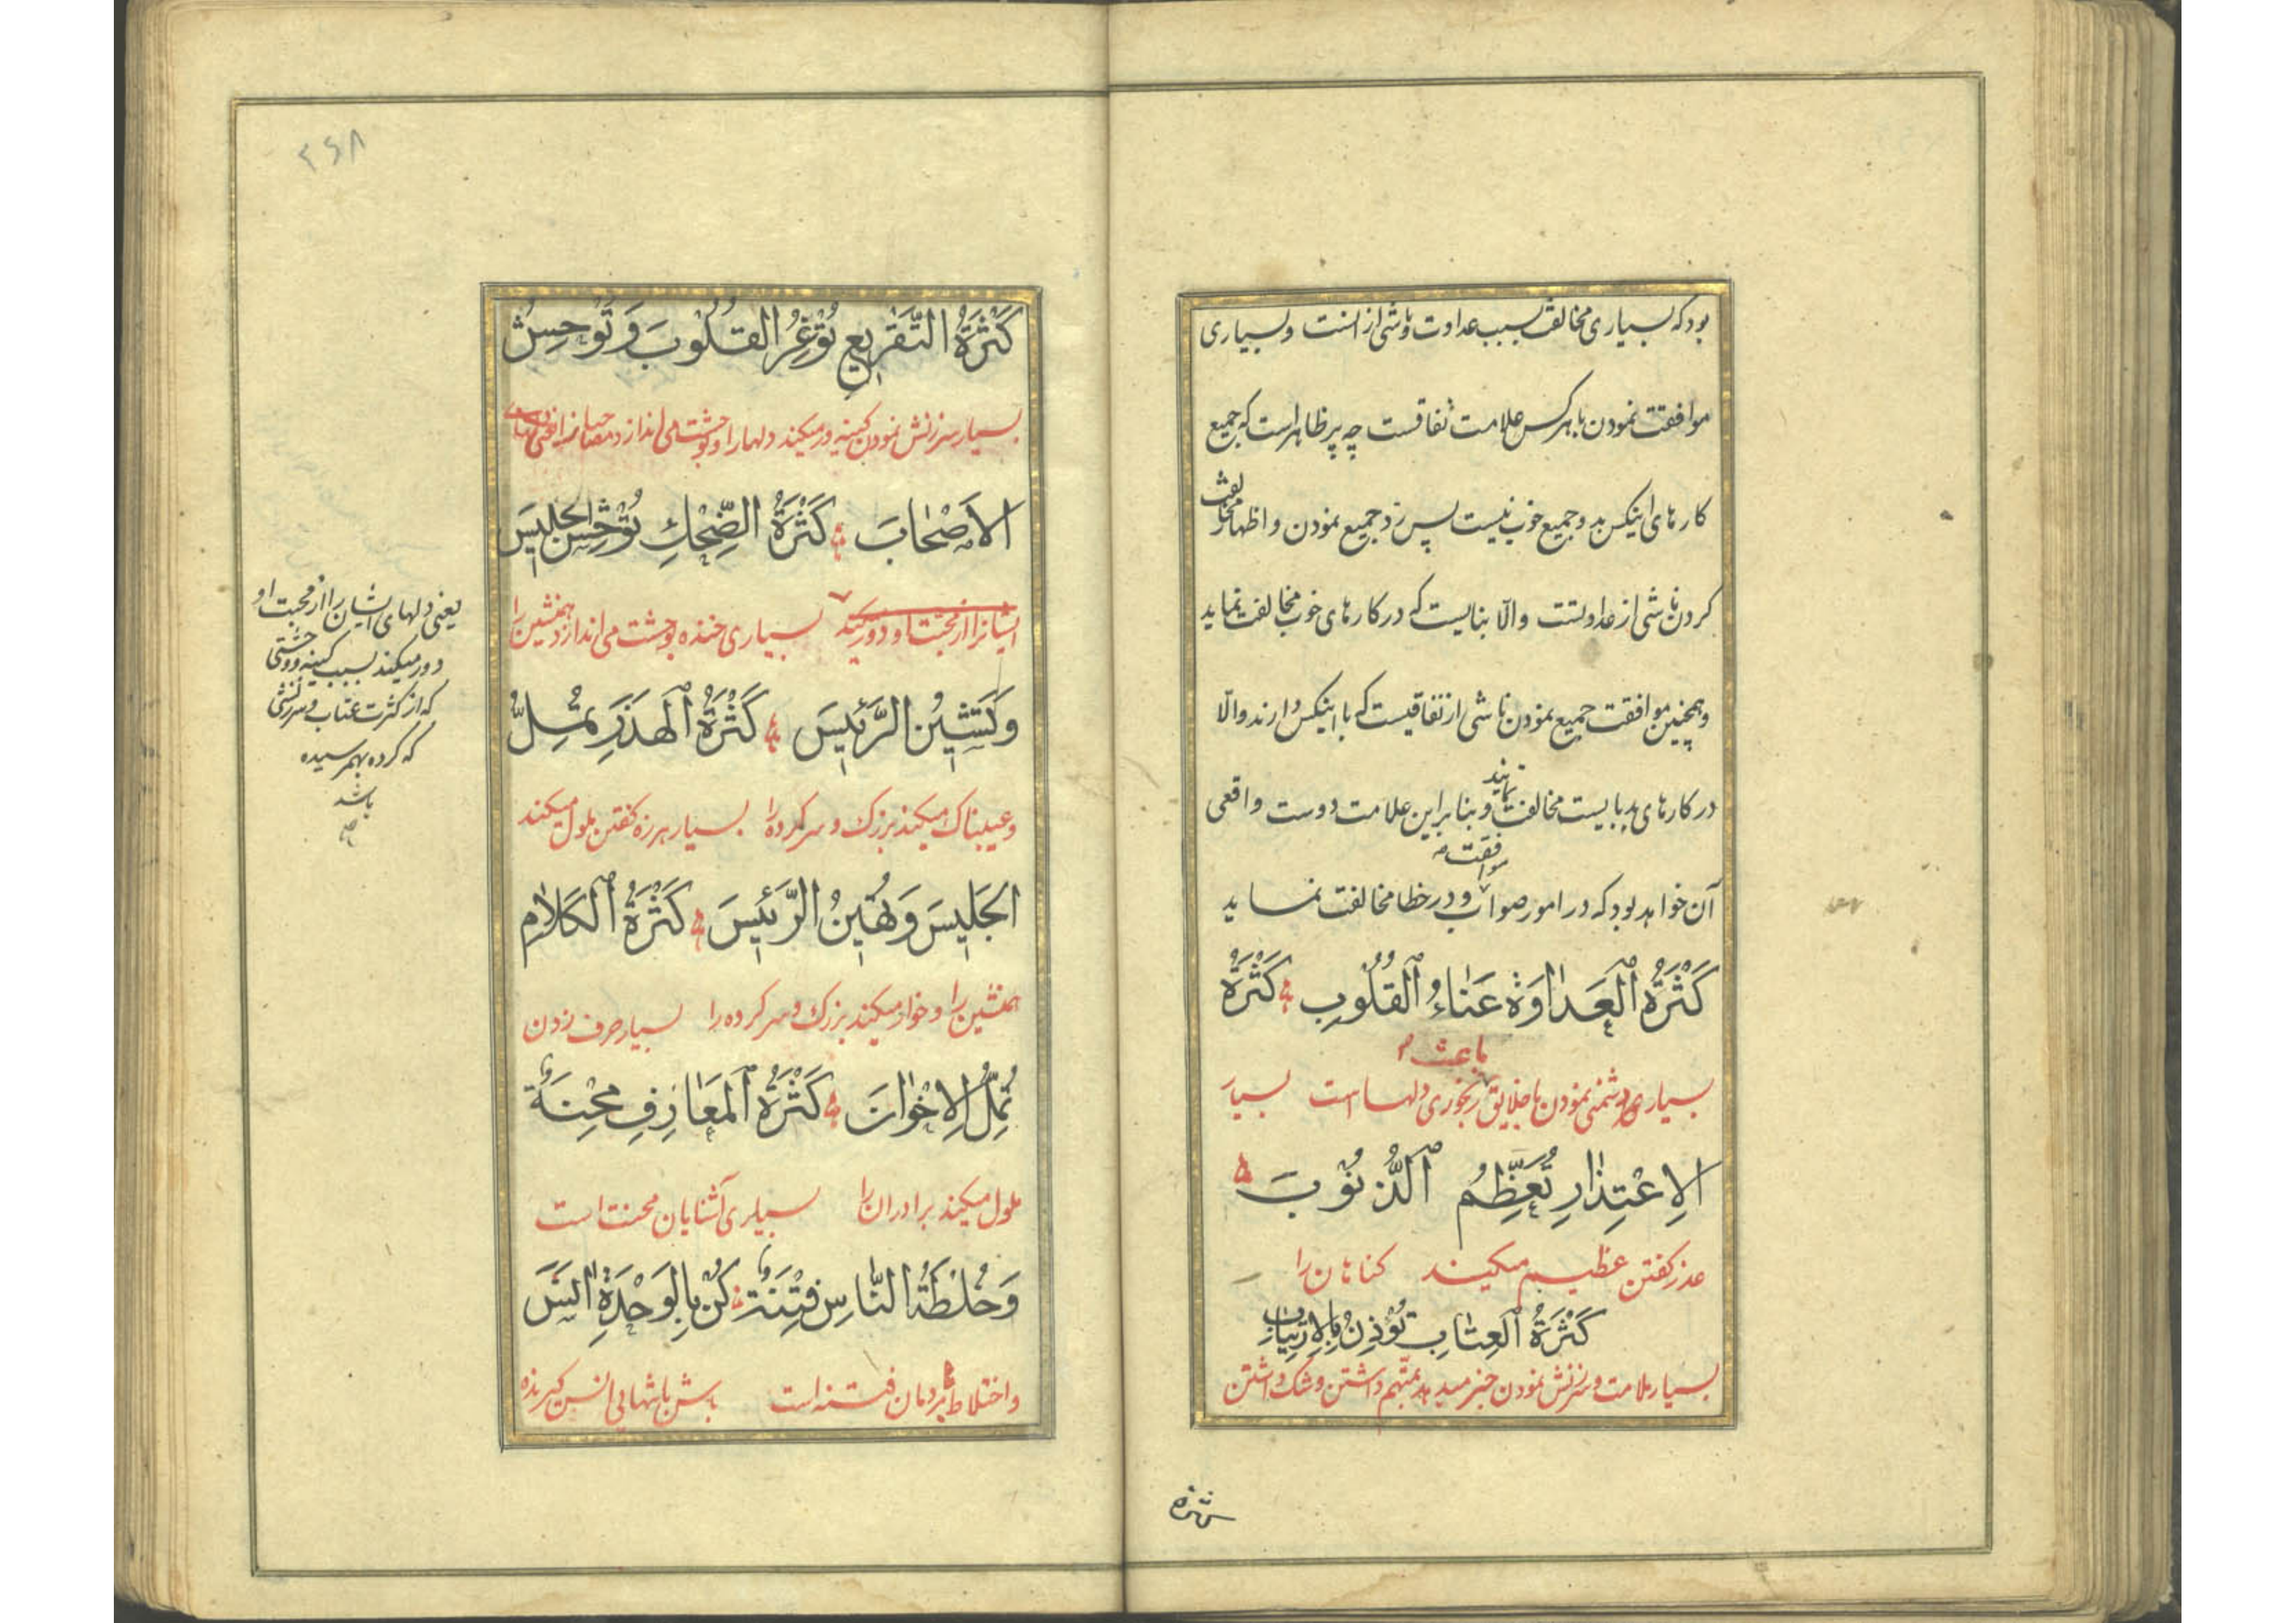 بود که بسیاری مخالفت سبب عداوت و ناشی از انست و بسیاری
موافقت نمودن با هر کس علامت نفاقست چه پر ظاهر است که جمیع
کارهای اینکس بد و جمیع خوب نیست پس رد جمیع نمودن و اظهار مخالفت
کردن ناشی از عداوتست والّا بنایست که در کارهای خوب مخالفت نماید
و همچنین موافقت جمیع نمودن ناشی از نفاقیست که با اینکس دارند والّا
در کارهای بد بایست مخالفت نمایند و بنا براین علامت دوست واقعی
آن خواهد بود که در امور صواب موافقت و در خطا مخالفت نماید
كَثْرَةُ الْعَدَاوَةِ عَنَاءُ الْقُلُوبِ كَثْرَةُ
بسیاری دشمنی نمودن با خلایق باعث رنجوری دلهاست بسیار
الِاعْتِذَارِ تُعَظِّمُ الذُّنُوبَ
عذر گفتن عظیم میکند کناهان را
كَثْرَةُ الْعِتَابِ تُؤْذِنُ بِالِارْتِيَابِ
بسیار ملامت و سرزنش نمودن خبر میدهد بمتّهم داشتن و شک داشتن
۲۶۸
كَثْرَةُ التَّقْرِيعِ تُوغِرُ الْقُلُوبَ وَتُوحِشُ
بسیار سرزنش نمودن کینه ور میکند دلها را و بوحشت می اندازد مصاحبانرا یعنی دلهای
الْأَصْحَابَ كَثْرَةُ الضِّحْكِ تُوحِشُ الْجَلِيسَ
ایشانرا از محبت او دور میکند بسیاری خنده بوحشت می اندازد همنشین را
وَتَشِينُ الرَّئِيسَ كَثْرَةُ الْهَذَرِ تُمِلُّ
و عیبناک میکند بزرک و سرکرده را بسیار هرزه کفتن ملول میکند
الْجَلِيسَ وَتُهِينُ الرَّئِيسَ كَثْرَةُ الْكَلَامِ
همنشین را و خوار میکند بزرک و سرکرده را بسیار حرف زدن
تُمِلُّ الْإِخْوَانَ كَثْرَةُ الْمَعَارِفِ مِحْنَةٌ
ملول میکند برادران را بسیاری آشنایان محنت است
وَخُلْطَةُ النَّاسِ فِتْنَةٌ كُنْ بِالْوَحْدَةِ انَسَ
و اختلاط بمردمان فتنه است باش بتنهایی انس گیرنده
یعنی دلهای ایشان را از محبت او
دور میکند بسبب کینه و وحشتی
که از کثرت عتاب و سرزنشی
که کرده بهمرسیده
باشد